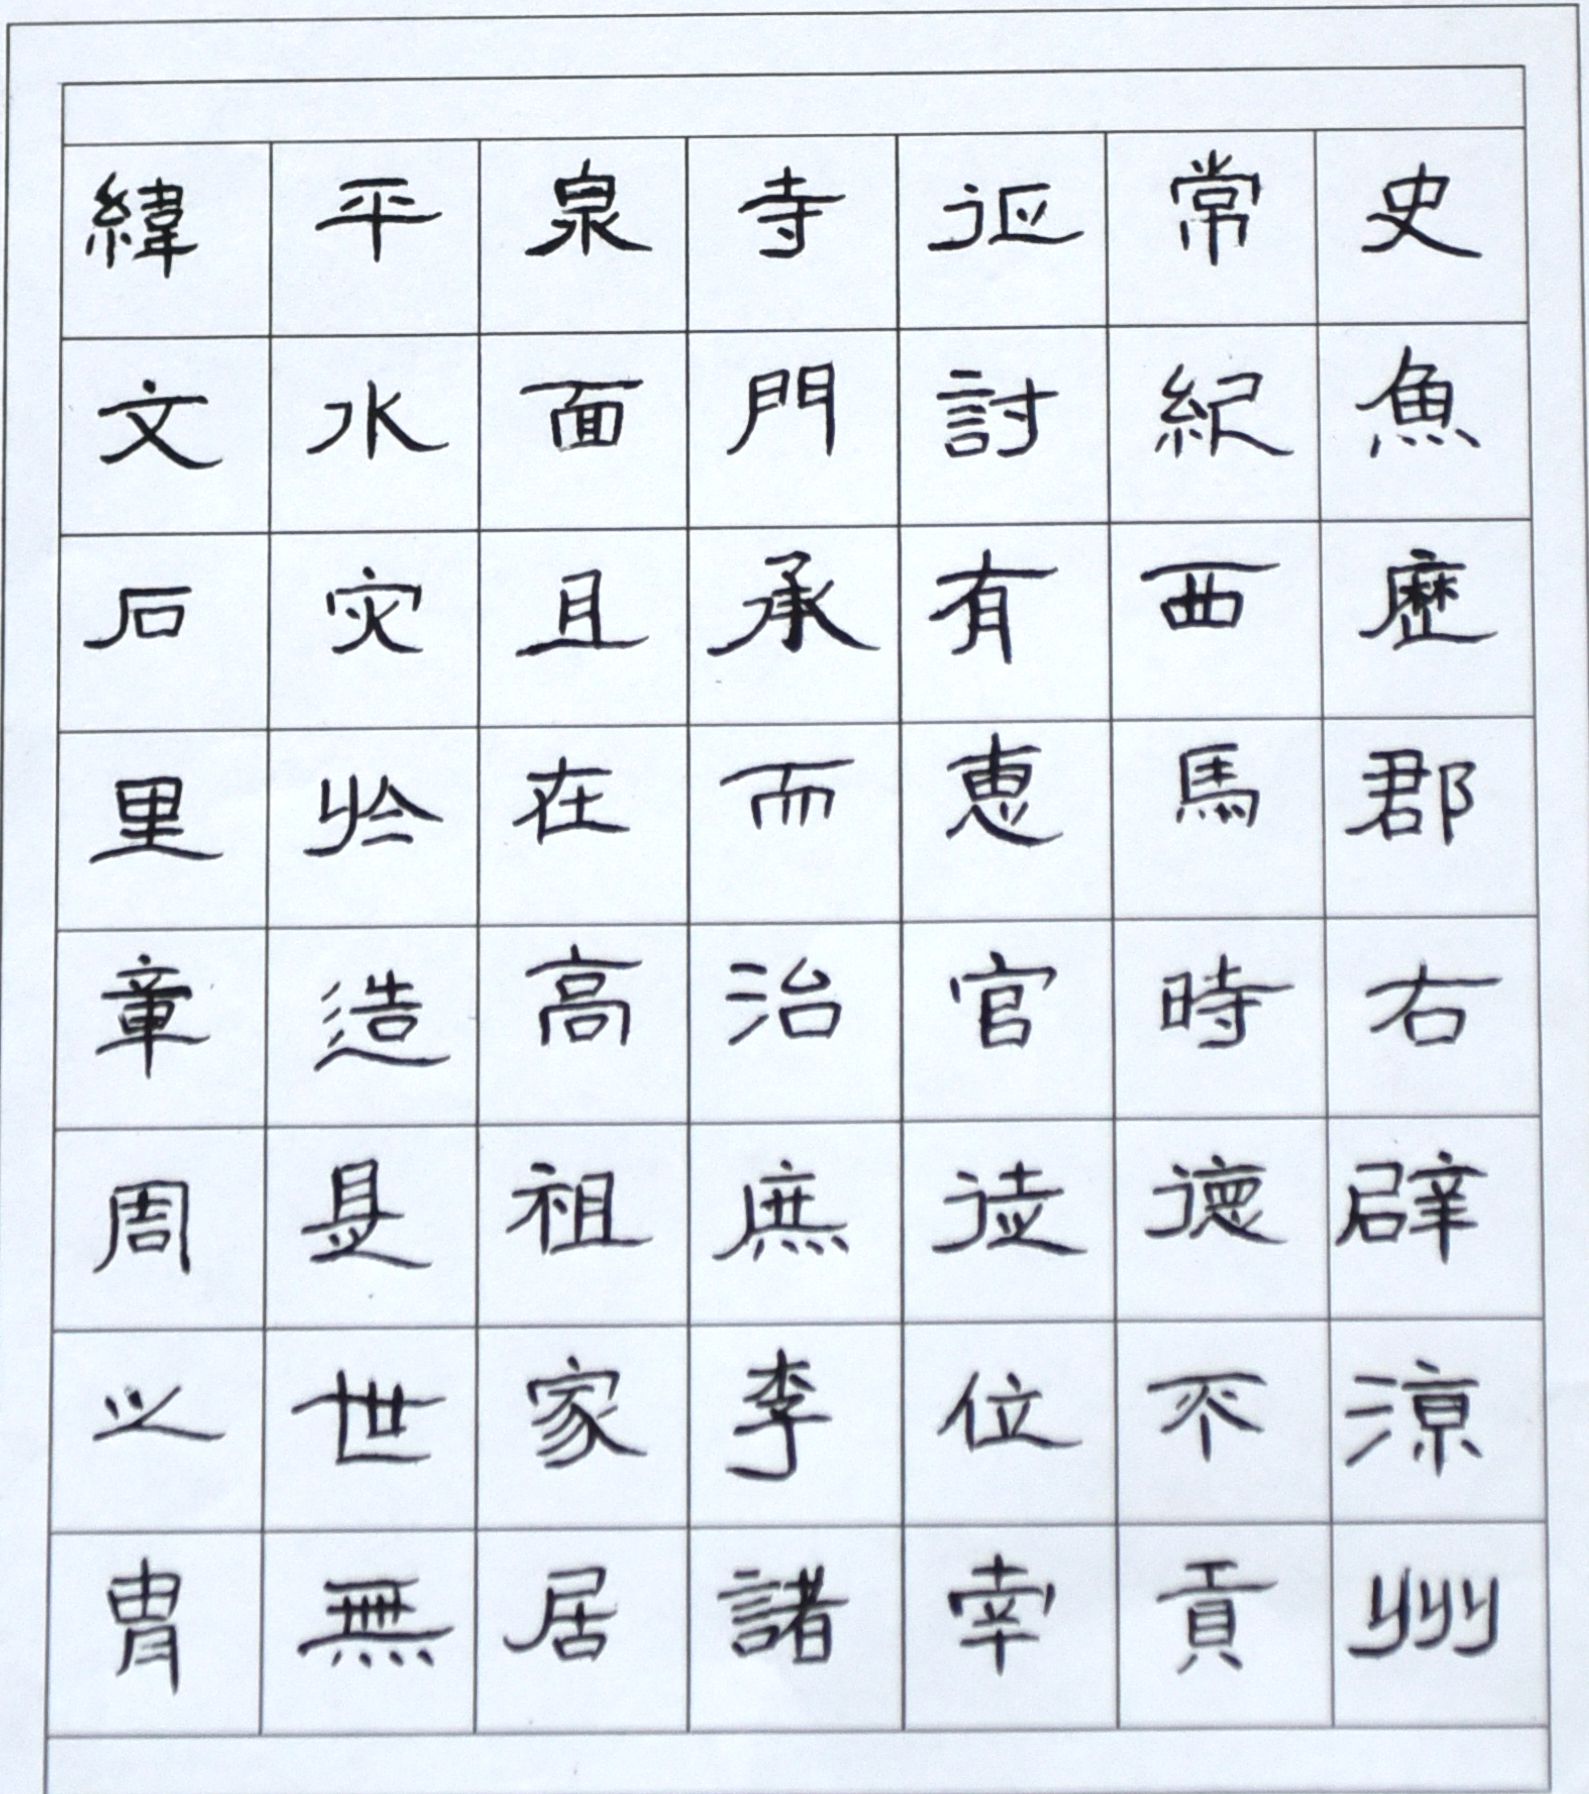 史魚歷郡右辟涼州
常紀西馬時德不貢
征討有惠官徒位宰
寺門承而治庶李諸
泉面且在高祖家居
平水灾於造是世無
緯文石里章周之胄